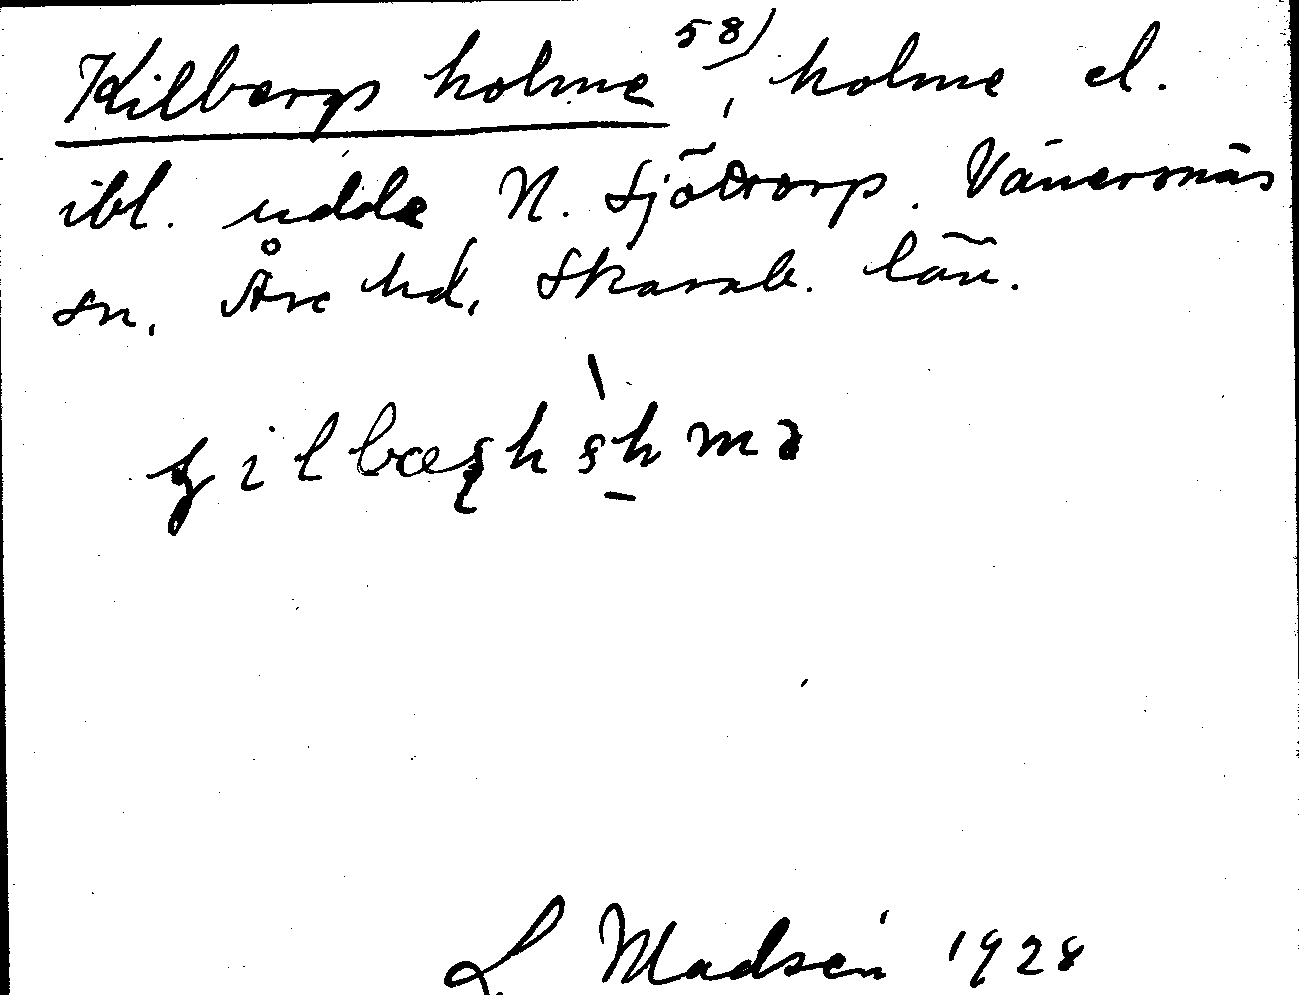 Kilbergs holme 58), holme el.
ibl. udde N. Sjötorp. Vänersnäs
sn, Åse hd, Skarab. län.
L Madsén 1928